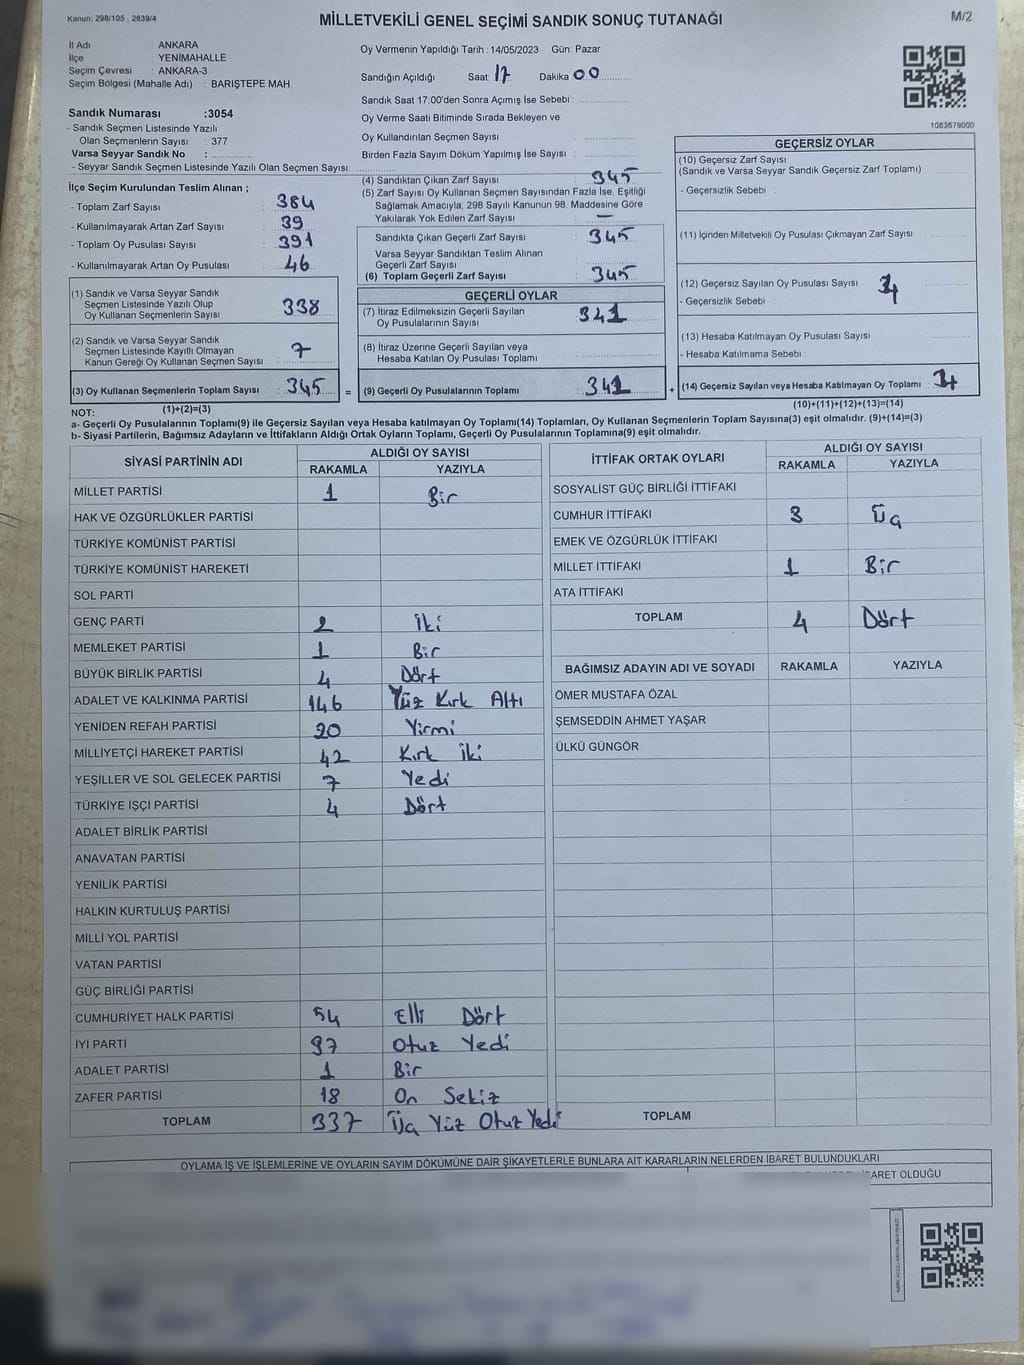 Kanun; 298/105 , 2839/4
MİLLETVEKİLİ GENEL SEÇİMİ SANDIK SONUÇ TUTANAĞI
M/2
İl Adı : ANKARA
İlçe : YENİMAHALLE
Seçim Çevresi : ANKARA-3
Seçim Bölgesi (Mahalle Adı) : BARIŞTEPE MAH
Sandık Numarası :3054
- Sandık Seçmen Listesinde Yazılı
Olan Seçmenlerin Sayısı : 377
Varsa Seyyar Sandık No :
- Seyyar Sandık Seçmen Listesinde Yazılı Olan Seçmen Sayısı:
Oy Vermenin Yapıldığı Tarih : 14/05/2023 Gün: Pazar
Sandığın Açıldığı Saat: 17 Dakika 00
Sandık Saat 17:00'den Sonra Açımış İse Sebebi :
Oy Verme Saati Bitiminde Sırada Bekleyen ve
Oy Kullandırılan Seçmen Sayısı :
Birden Fazla Sayım Döküm Yapılmış İse Sayısı :
1083679000
İlçe Seçim Kurulundan Teslim Alınan ;
- Toplam Zarf Sayısı : 384
- Kullanılmayarak Artan Zarf Sayısı : 39
- Toplam Oy Pusulası Sayısı : 391
- Kullanılmayarak Artan Oy Pusulası : 46
(1) Sandık ve Varsa Seyyar Sandık
Seçmen Listesinde Yazılı Olup
Oy Kullanan Seçmenlerin Sayısı : 338
(2) Sandık ve Varsa Seyyar Sandık
Seçmen Listesinde Kayıtlı Olmayan
Kanun Gereği Oy Kullanan Seçmen Sayısı : 7
(3) Oy Kullanan Seçmenlerin Toplam Sayısı : 345
(1)+(2)=(3)
(4) Sandıktan Çıkan Zarf Sayısı : 345
(5) Zarf Sayısı Oy Kullanan Seçmen Sayısından Fazla İse, Eşitliği
Sağlamak Amacıyla, 298 Sayılı Kanunun 98. Maddesine Göre
Yakılarak Yok Edilen Zarf Sayısı : —
Sandıkta Çıkan Geçerli Zarf Sayısı : 345
Varsa Seyyar Sandıktan Teslim Alınan
Geçerli Zarf Sayısı :
(6) Toplam Geçerli Zarf Sayısı : 345
GEÇERLİ OYLAR
(7) İtiraz Edilmeksizin Geçerli Sayılan
Oy Pusulalarının Sayısı : 341
(8) İtiraz Üzerine Geçerli Sayılan veya
Hesaba Katılan Oy Pusulası Toplamı :
= (9) Geçerli Oy Pusulalarının Toplamı : 341 +
GEÇERSİZ OYLAR
(10) Geçersiz Zarf Sayısı
(Sandık ve Varsa Seyyar Sandık Geçersiz Zarf Toplamı) :
- Geçersizlik Sebebi :
(11) İçinden Milletvekili Oy Pusulası Çıkmayan Zarf Sayısı :
(12) Geçersiz Sayılan Oy Pusulası Sayısı : 4
- Geçersizlik Sebebi :
(13) Hesaba Katılmayan Oy Pusulası Sayısı :
- Hesaba Katılmama Sebebi :
(14) Geçersiz Sayılan veya Hesaba Katılmayan Oy Toplamı : 4
(10)+(11)+(12)+(13)=(14)
NOT:
a- Geçerli Oy Pusulalarının Toplamı(9) ile Geçersiz Sayılan veya Hesaba Katılmayan Oy Toplamı(14) Toplamları, Oy Kullanan Seçmenlerin Toplam Sayısına(3) eşit olmalıdır. (9)+(14)=(3)
b- Siyasi Partilerin, Bağımsız Adayların ve İttifakların Aldığı Ortak Oyların Toplamı, Geçerli Oy Pusulalarının Toplamına(9) eşit olmalıdır.
SİYASİ PARTİNİN ADI
ALDIĞI OY SAYISI
RAKAMLA YAZIYLA
MİLLET PARTİSİ 1 Bir
HAK VE ÖZGÜRLÜKLER PARTİSİ
TÜRKİYE KOMÜNİST PARTİSİ
TÜRKİYE KOMÜNİST HAREKETİ
SOL PARTİ
GENÇ PARTİ 2 İki
MEMLEKET PARTİSİ 1 Bir
BÜYÜK BİRLİK PARTİSİ 4 Dört
ADALET VE KALKINMA PARTİSİ 146 Yüz Kırk Altı
YENİDEN REFAH PARTİSİ 20 Yirmi
MİLLİYETÇİ HAREKET PARTİSİ 42 Kırk İki
YEŞİLLER VE SOL GELECEK PARTİSİ 7 Yedi
TÜRKİYE İŞÇİ PARTİSİ 4 Dört
ADALET BİRLİK PARTİSİ
ANAVATAN PARTİSİ
YENİLİK PARTİSİ
HALKIN KURTULUŞ PARTİSİ
MİLLİ YOL PARTİSİ
VATAN PARTİSİ
GÜÇ BİRLİĞİ PARTİSİ
CUMHURİYET HALK PARTİSİ 54 Elli Dört
İYİ PARTİ 37 Otuz Yedi
ADALET PARTİSİ 1 Bir
ZAFER PARTİSİ 18 On Sekiz
TOPLAM 337 Üç Yüz Otuz Yedi
İTTİFAK ORTAK OYLARI
ALDIĞI OY SAYISI
RAKAMLA YAZIYLA
SOSYALİST GÜÇ BİRLİĞİ İTTİFAKI
CUMHUR İTTİFAKI 3 Üç
EMEK VE ÖZGÜRLÜK İTTİFAKI
MİLLET İTTİFAKI 1 Bir
ATA İTTİFAKI
TOPLAM 4 Dört
BAĞIMSIZ ADAYIN ADI VE SOYADI RAKAMLA YAZIYLA
ÖMER MUSTAFA ÖZAL
ŞEMSEDDİN AHMET YAŞAR
ÜLKÜ GÜNGÖR
TOPLAM
OYLAMA İŞ VE İŞLEMLERİNE VE OYLARIN SAYIM DÖKÜMÜNE DAİR ŞİKAYETLERLE BUNLARA AİT KARARLARIN NELERDEN İBARET BULUNDUKLARI
OLDUĞU